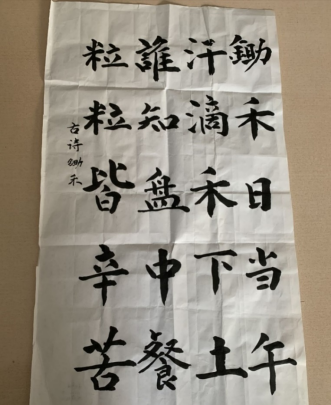 鋤禾日当午
汗滴禾下土
誰知盘中餐
粒粒皆辛苦
古诗鋤禾